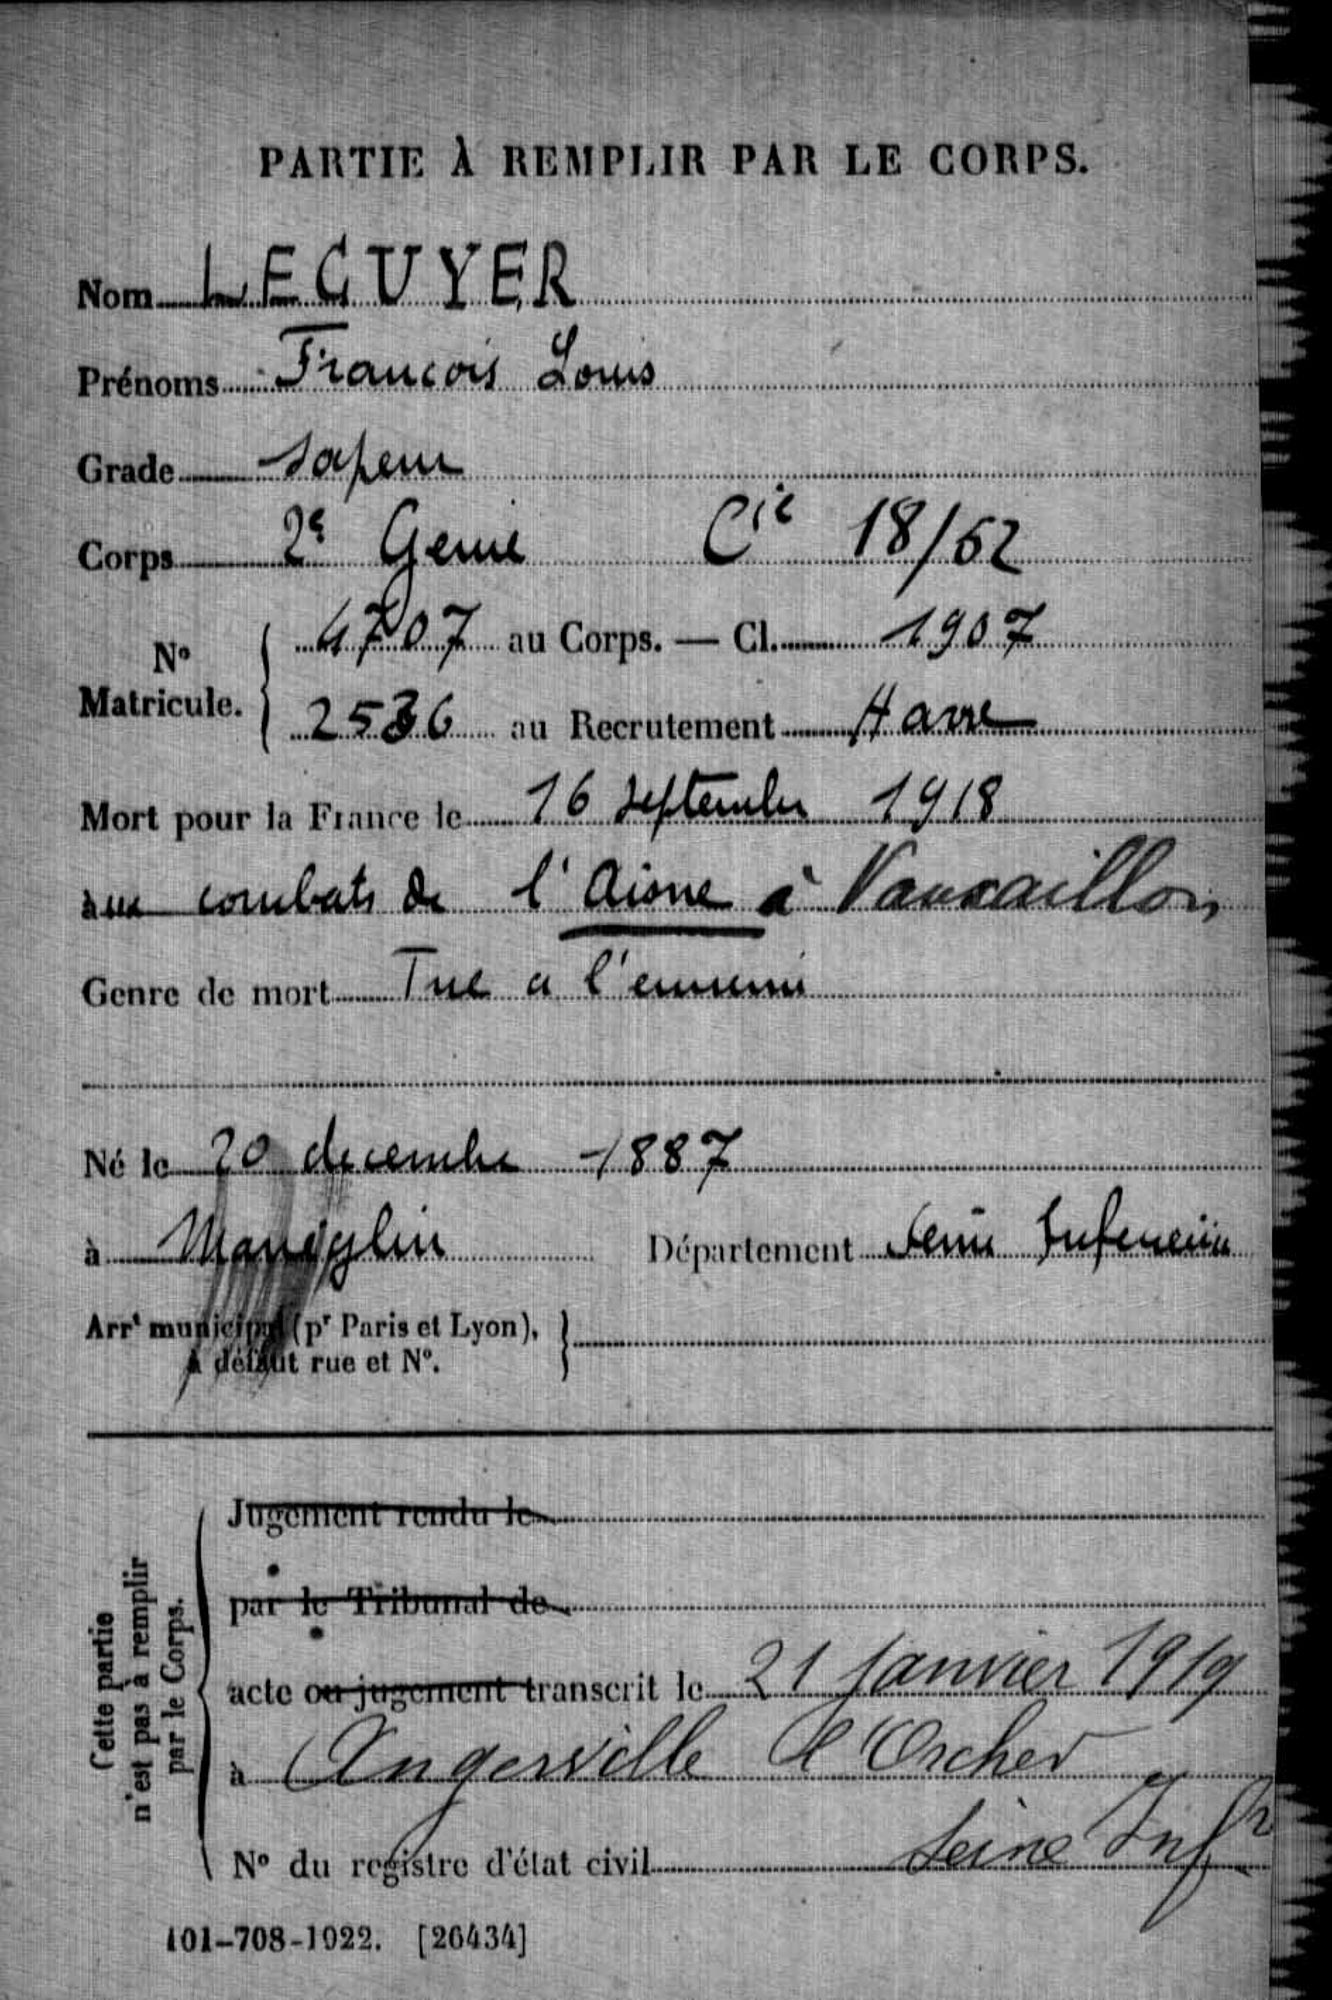 PARTIE À REMPLIR PAR LE CORPS.
Nom LEGUYER
Prénoms Francois Louis
Grade Sapeur
Corps 2e Genie Cie 18/52
No Matricule. 4707 au Corps. — Cl. 1907
2536 au Recrutement Havre
Mort pour la France le 16 septembre 1918
aux combats de l'Aisne à Vauxaillon
Genre de mort Tué a l'ennemi
Né le 20 decembre 1887
à Département Seine Inferieure
Arrt municipal (pr Paris et Lyon),
à défaut rue et No.
Cette partie
n'est pas à remplir
par le Corps.
Jugement rendu le
par le Tribunal de
acte ou jugement transcrit le 21 Janvier 1919
à Angerville l'Orcher
Seine Infre
No du registre d'état civil
101-708-1922. [26434]